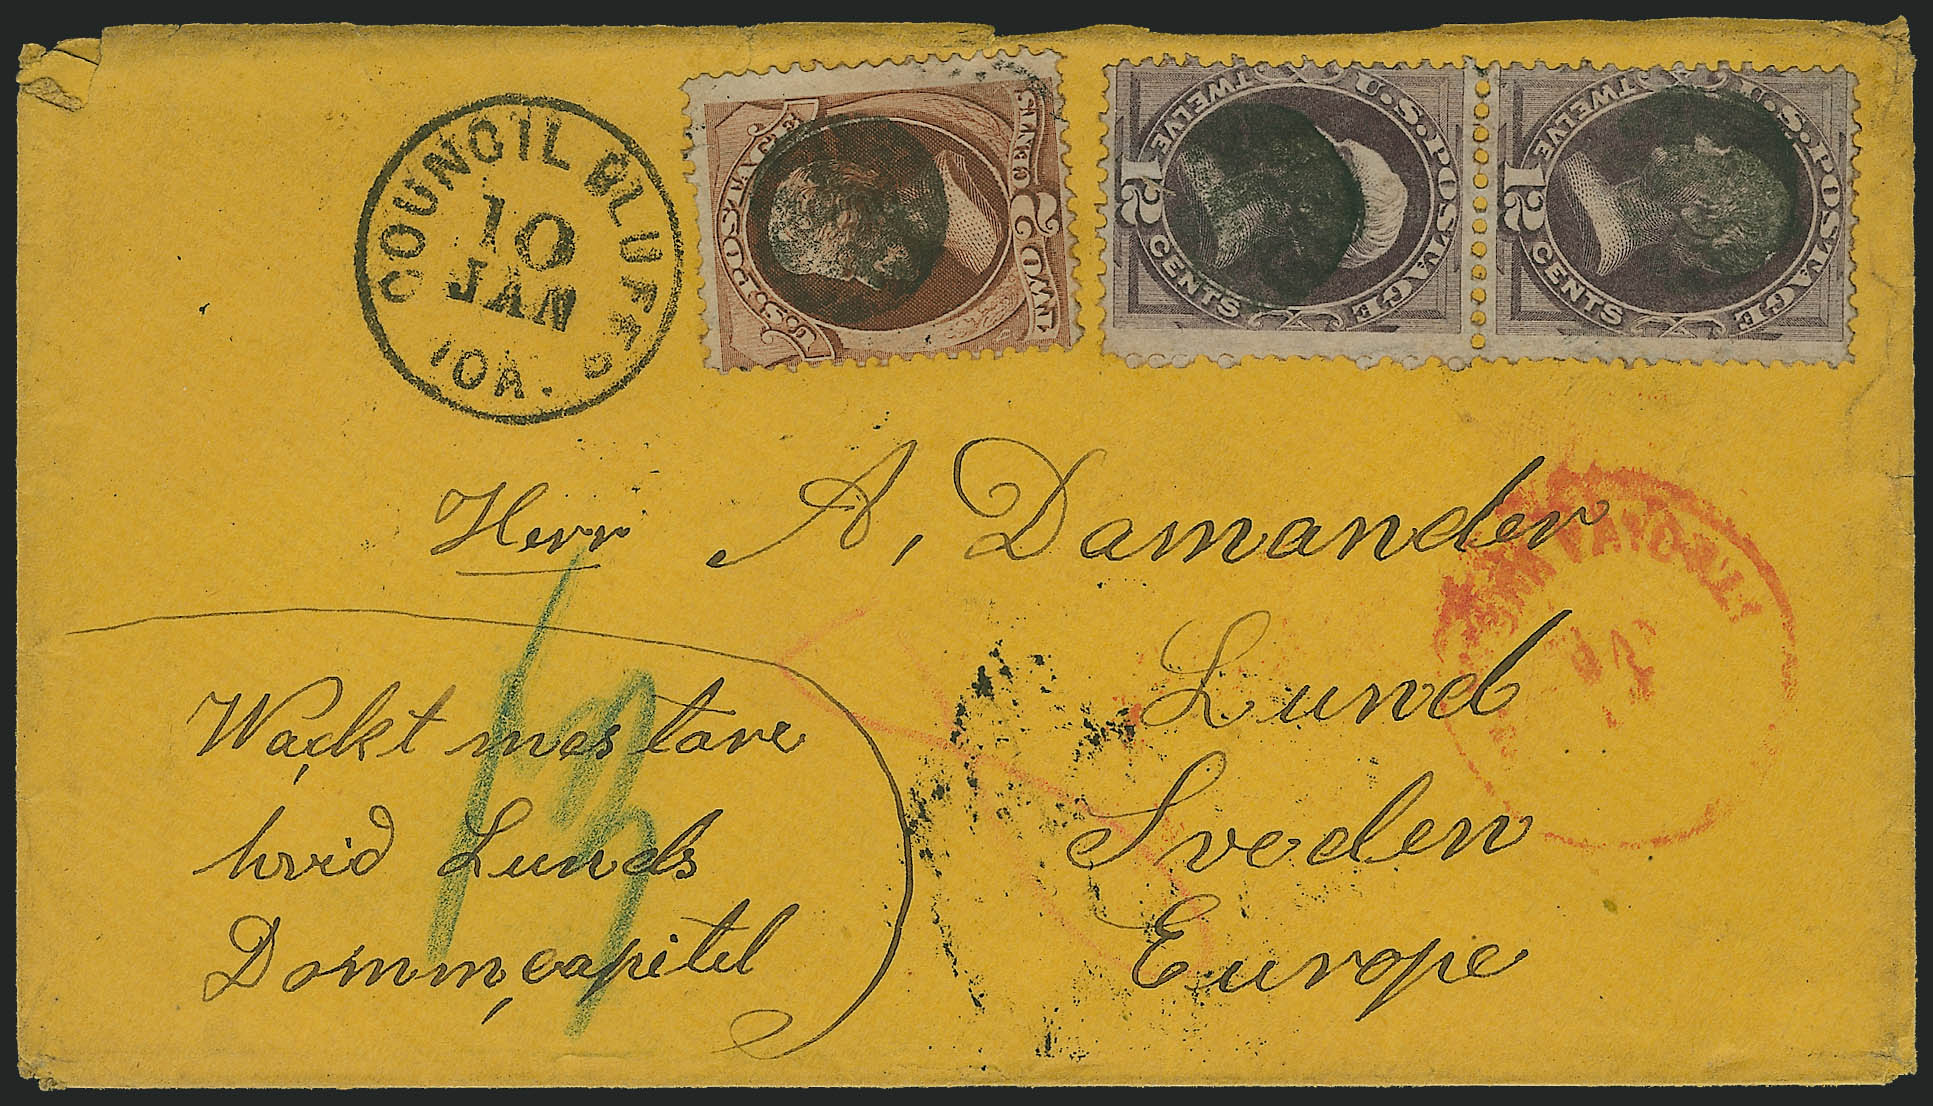 COUNCIL BLUFFS
10
JAN
IOA.
U.S. POSTAGE
TWO CENTS
U.S. POSTAGE
TWELVE
12
CENTS
U.S. POSTAGE
TWELVE
12
CENTS
Herr A, Damander
Lund
Sveden
Europe
Wacktmastare
hvid Lunds
Domm, capitel